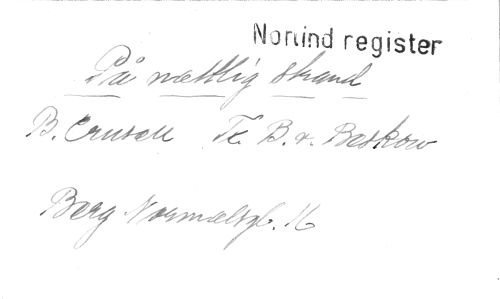 Norlind register
På nattlig strand
B. Crusell Tx. B. v. Beskow
Berg Normalsgb. 16